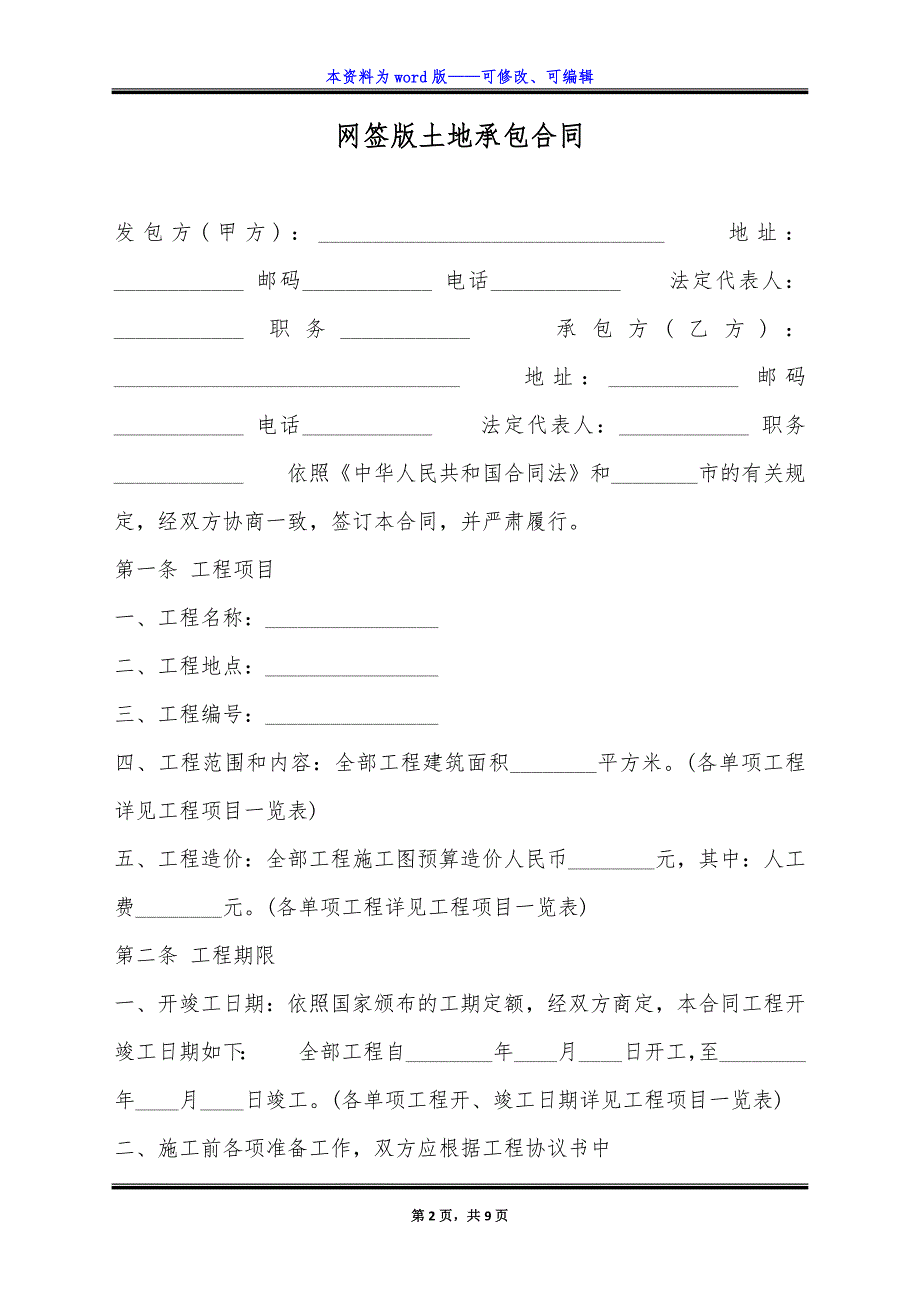 本资料为 word 版——可修改、可编辑
网签版土地承包合同
发包方(甲方)：________________________________ 地址：
____________ 邮码____________ 电话____________ 法定代表人：
____________ 职务____________ 承包方(乙方)：
________________________________ 地址：____________ 邮码
____________ 电话____________ 法定代表人：____________ 职务
____________ 依照《中华人民共和国合同法》和________市的有关规
定，经双方协商一致，签订本合同，并严肃履行。
第一条 工程项目
一、工程名称：________________
二、工程地点：________________
三、工程编号：________________
四、工程范围和内容：全部工程建筑面积________平方米。(各单项工程
详见工程项目一览表)
五、工程造价：全部工程施工图预算造价人民币________元，其中：人工
费________元。(各单项工程详见工程项目一览表)
第二条 工程期限
一、开竣工日期：依照国家颁布的工期定额，经双方商定，本合同工程开
竣工日期如下： 全部工程自________年____月____日开工，至________
年____月____日竣工。(各单项工程开、竣工日期详见工程项目一览表)
二、施工前各项准备工作，双方应根据工程协议书中
第 2 页，共 9 页